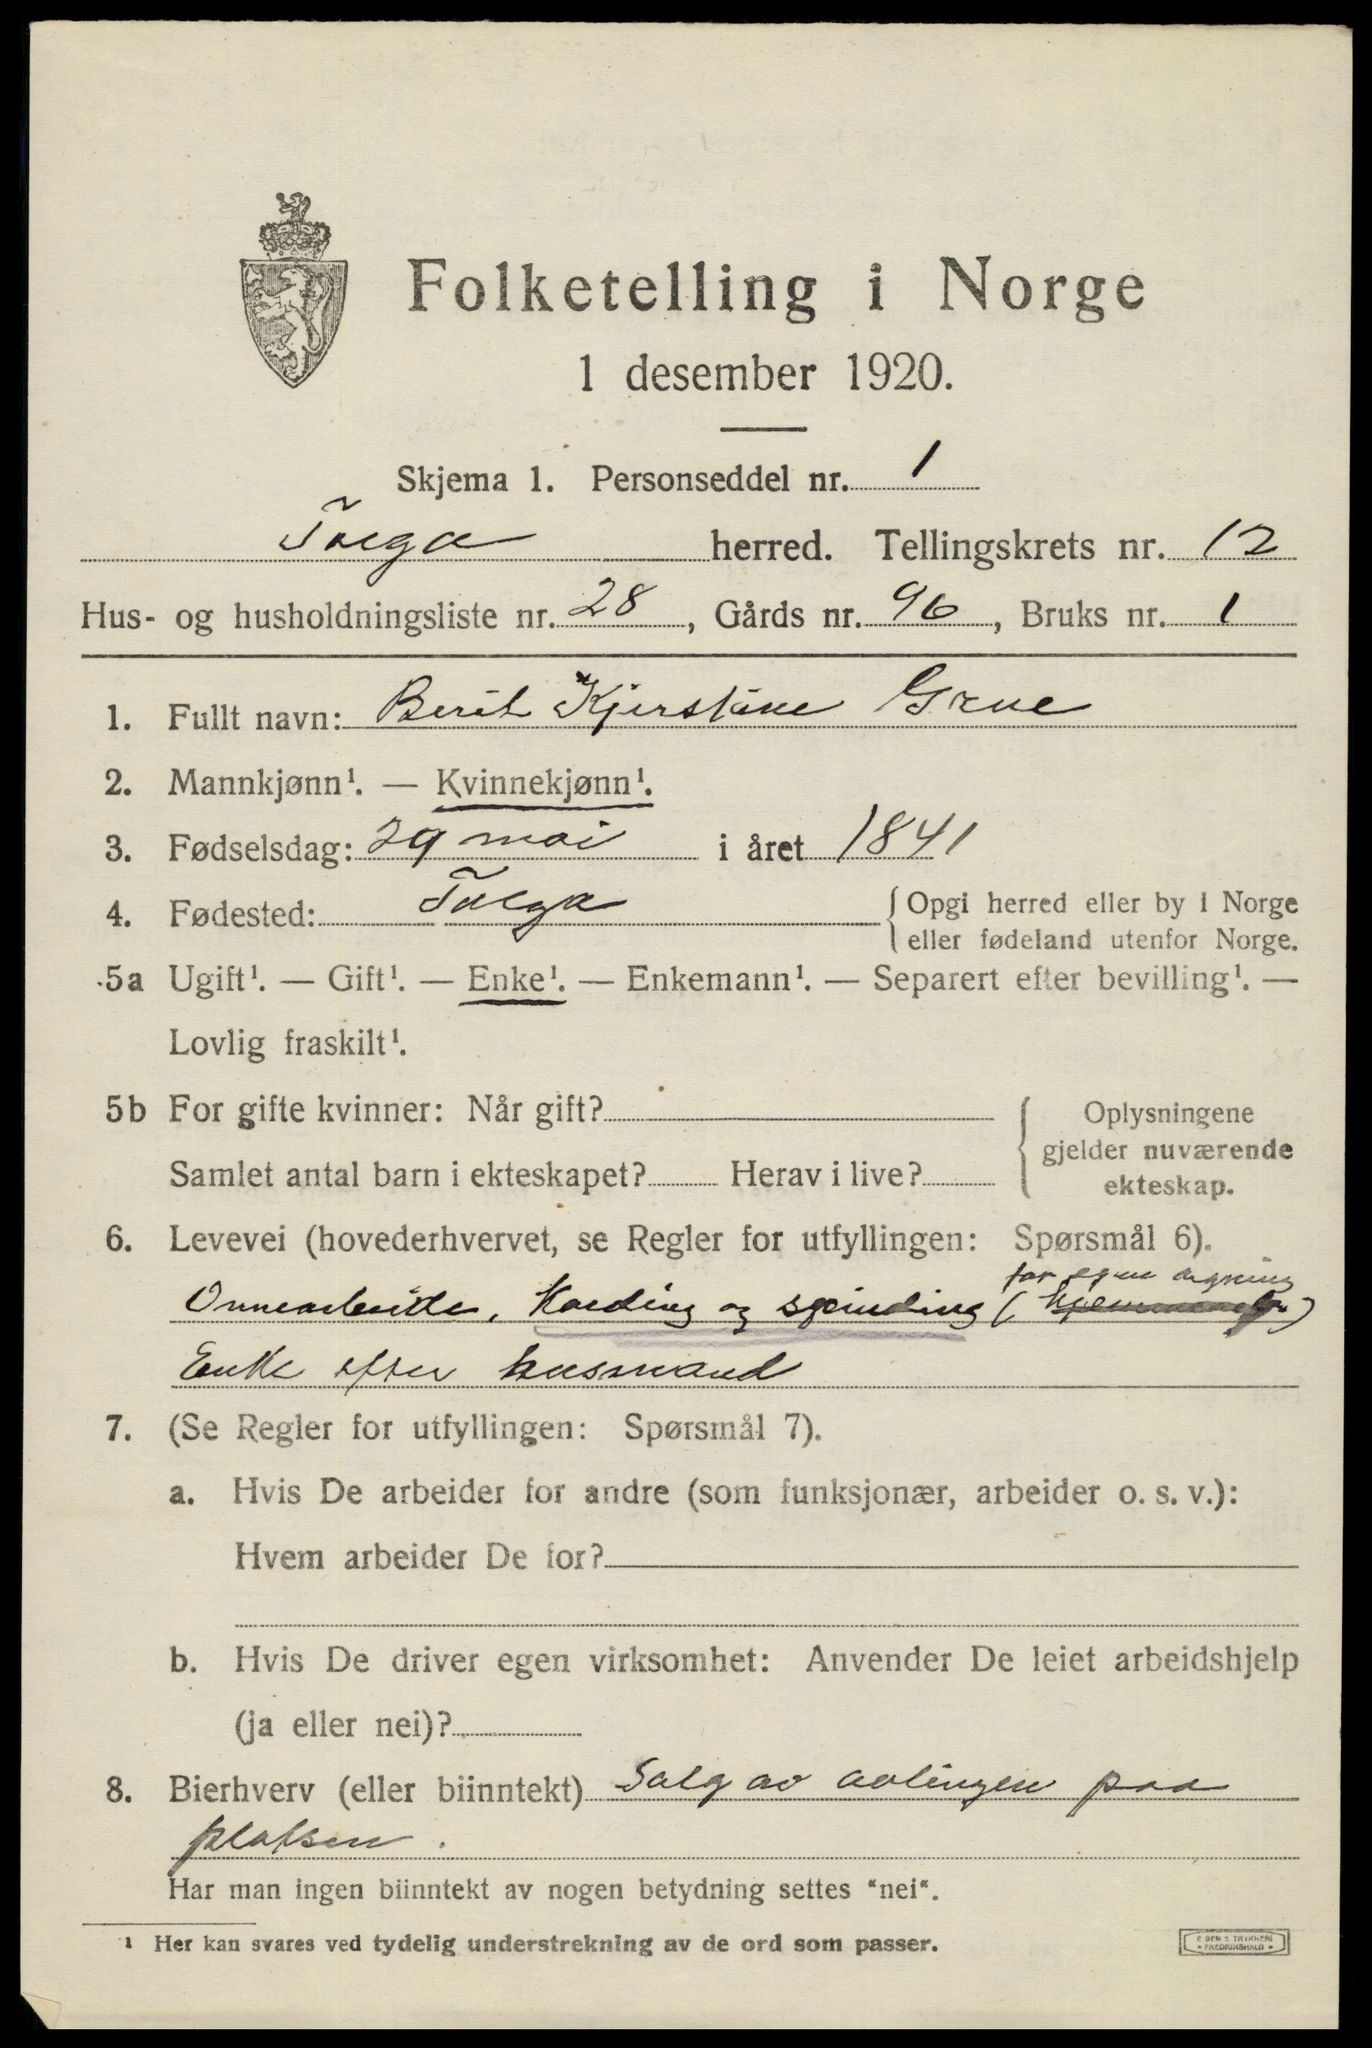 Folketelling i Norge
1 desember 1920.
Skjema 1. Personseddel nr. 1
Tolga herred. Tellingskrets nr. 12
Hus- og husholdningsliste nr. 28, Gårds nr. 96, Bruks nr. 1
1. Fullt navn: Berit Kjerstine Grue
2. Mannkjønn¹. — Kvinnekjønn¹.
3. Fødselsdag: 29 mai i året 1841
4. Fødested: Tolga {Opgi herred eller by i Norge
eller fødeland utenfor Norge.
5a Ugift¹. — Gift¹. — Enke¹. — Enkemann¹. — Separert efter bevilling¹. —
Lovlig fraskilt¹.
5b For gifte kvinner: Når gift?
Samlet antal barn i ekteskapet? Herav i live?
{ Oplysningene
gjelder nuværende
ekteskap.
6. Levevei (hovederhvervet, se Regler for utfyllingen: Spørsmål 6).
for egen regning
Onnearbeide, Karding og spinding ( )
Enke efter husmand
7. (Se Regler for utfyllingen: Spørsmål 7).
a. Hvis De arbeider for andre (som funksjonær, arbeider o. s. v.):
Hvem arbeider De for?
b. Hvis De driver egen virksomhet: Anvender De leiet arbeidshjelp
(ja eller nei)?
8. Bierhverv (eller biinntekt) Salg av avlingen paa
platsen.
Har man ingen biinntekt av nogen betydning settes "nei".
¹ Her kan svares ved tydelig understrekning av de ord som passer.